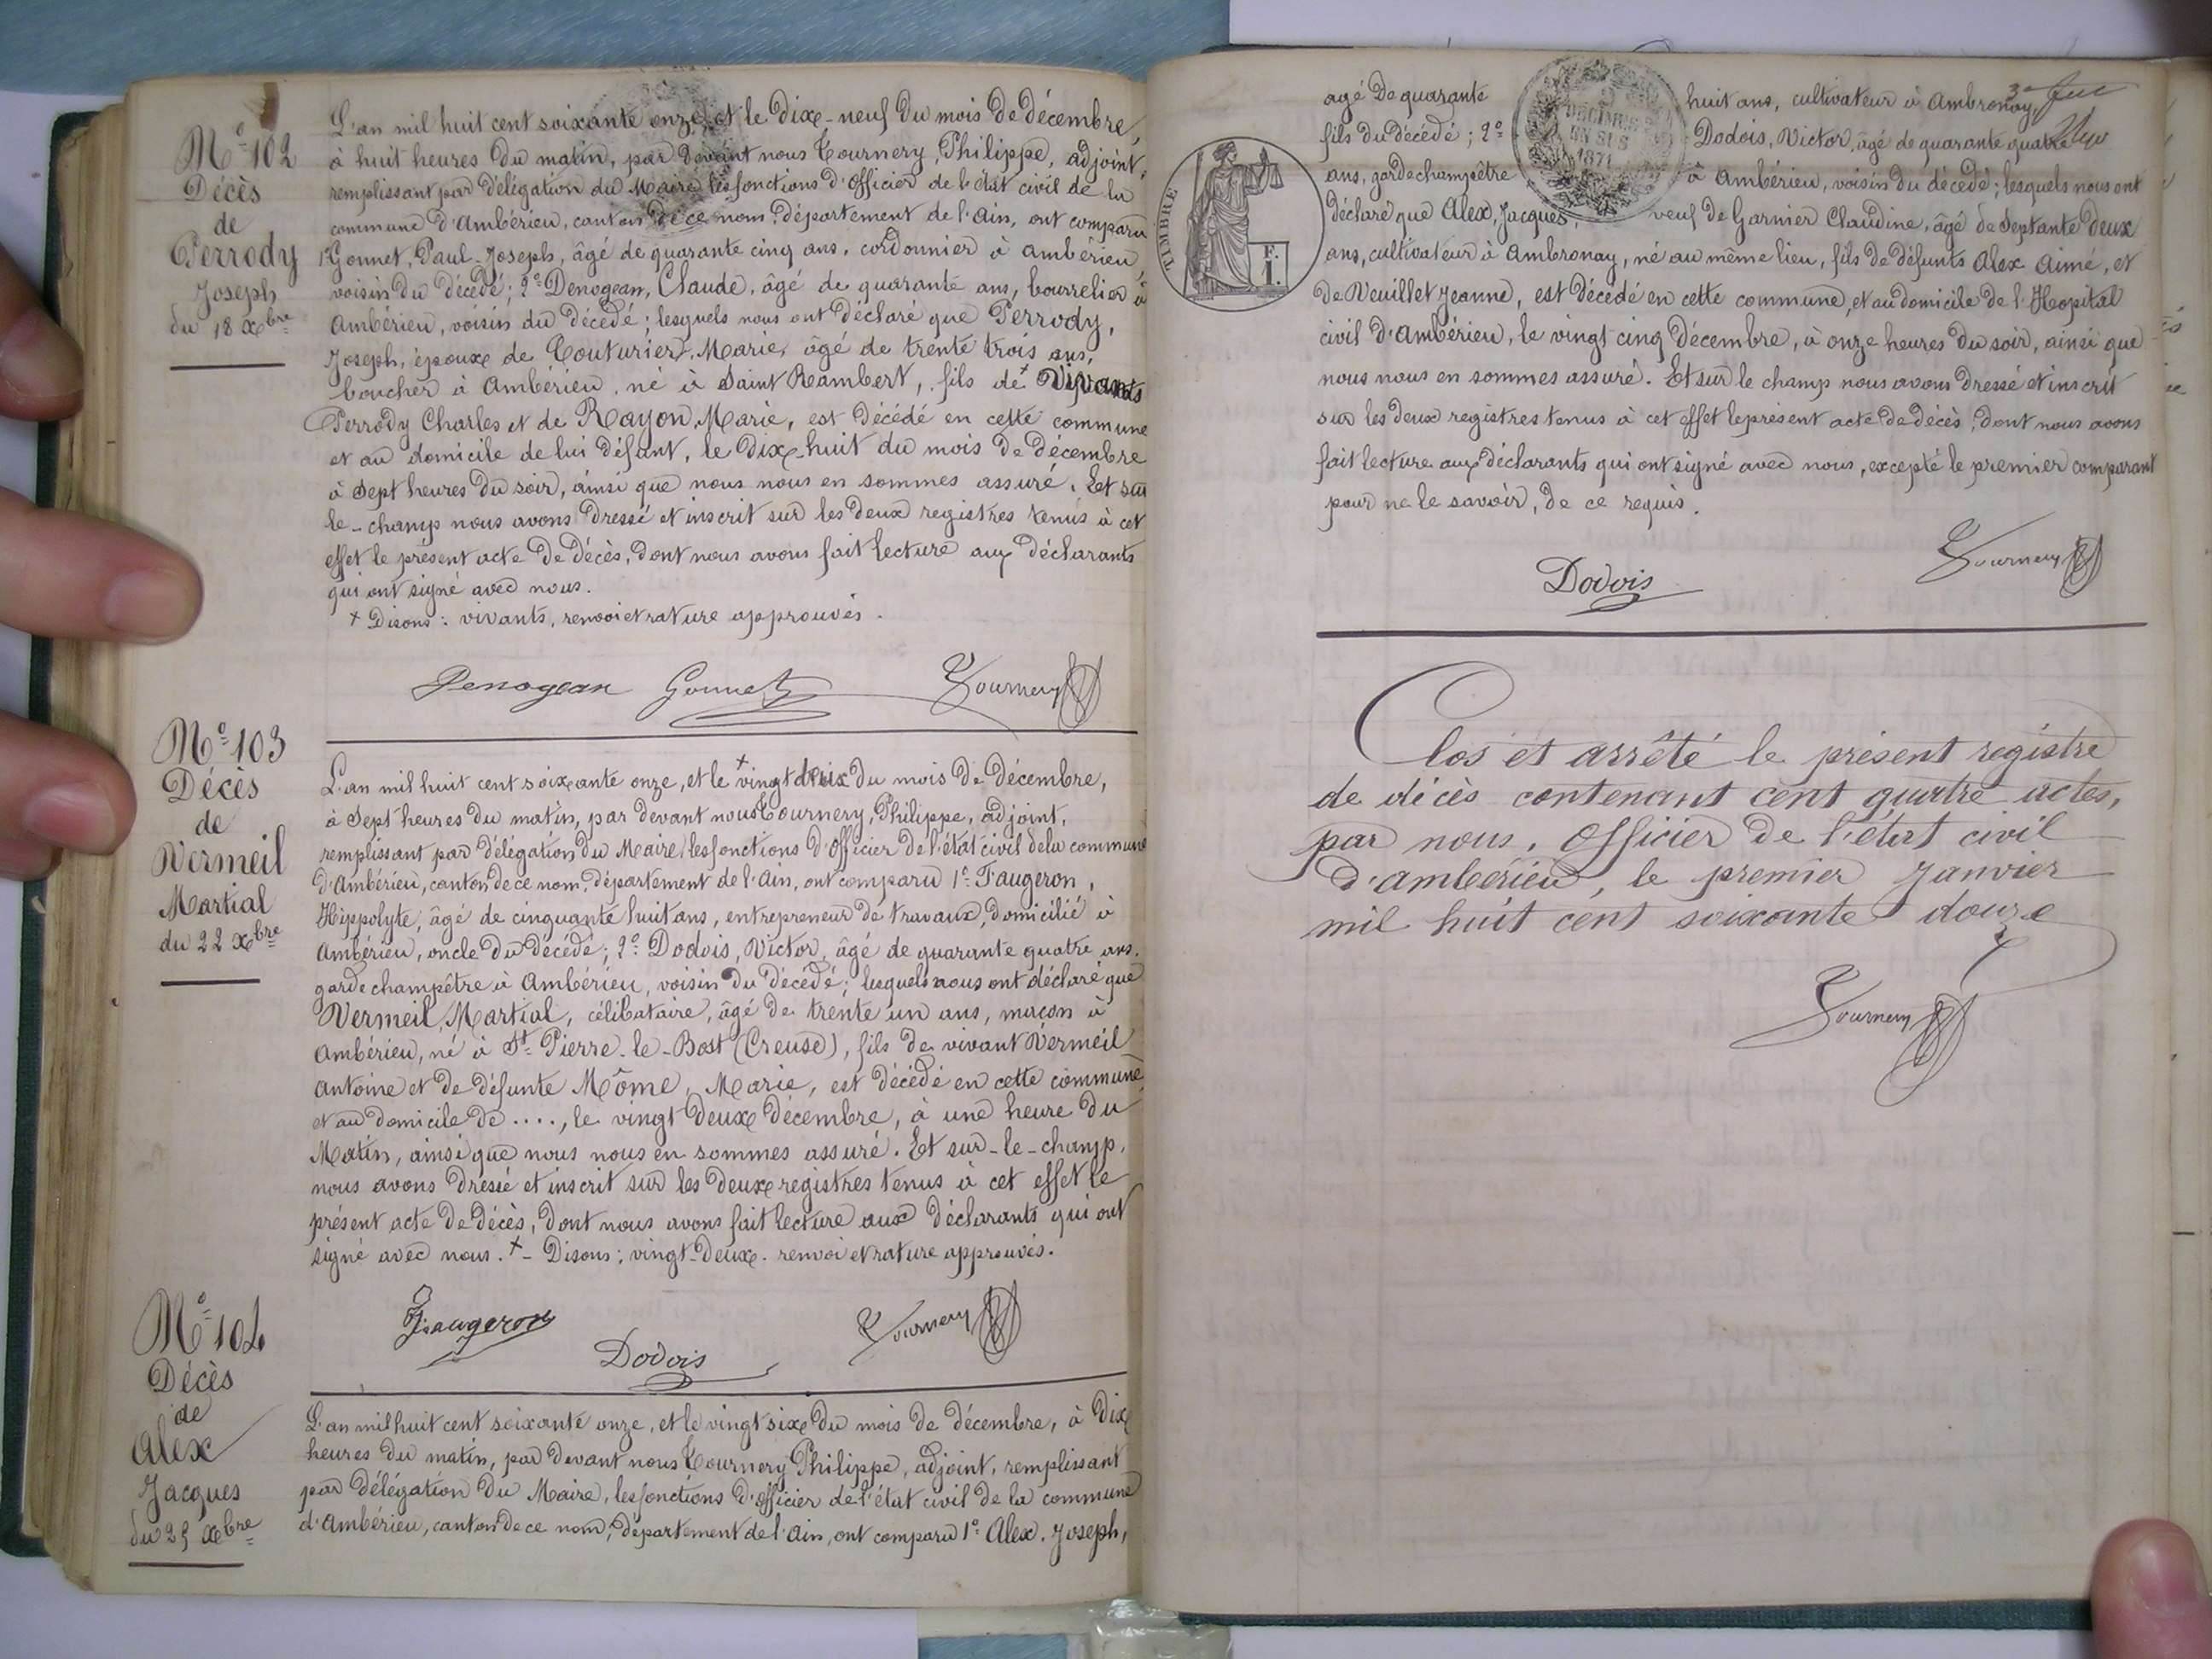 N° 102
Décès
de
Perrody
Joseph
du 18 Xbre
L'an mil huit cent soixante onze, et le Dix-neuf du mois de décembre,
à huit heures du matin, par devant nous Tournery, Philippe, adjoint,
remplissant par délégation du Maire les fonctions d'Officier de l'état civil de la
commune d'Ambérieu, canton de ce nom, département de l'Ain, ont comparu
1° Gonnet, Paul-Joseph, âgé de quarante cinq ans, cordonnier à Ambérieu,
voisin du décédé; 2° Denogean, Claude, âgé de quarante ans, bourrelier à
Ambérieu, voisin du décédé; lesquels nous ont déclaré que Perrody,
Joseph, époux de Couturier, Marie, âgé de trente trois ans,
boucher à Ambérieu, né à Saint Rambert, fils de + vivants
Perrody Charles et de Rayon, Marie, est décédé en cette commune
et au domicile de lui défunt, le Dix-huit du mois de décembre
à Sept heures du soir, ainsi que nous nous en sommes assuré. Et sur
le-champ nous avons dressé et inscrit sur les deux registres tenus à cet
effet le présent acte de décès, dont nous avons fait lecture aux déclarants
qui ont signé avec nous.
+ Disons : vivants, renvoi et rature approuvés.
Denogean Gonnet Tournery
N° 103
Décès
de
Vermeil
Martial
du 22 Xbre
L'an mil huit cent soixante onze, et le + vingt deux du mois de décembre,
à Sept heures du matin, par devant nous Tournery, Philippe, adjoint,
remplissant par délégation du Maire, les fonctions d'Officier de l'état civil de la commune
d'Ambérieu, canton de ce nom, département de l'Ain, ont comparu 1° Faugeron,
Hippolyte, âgé de cinquante huit ans, entrepreneur de travaux, domicilié à
Ambérieu, oncle du décédé; 2° Dodois, Victor, âgé de quarante quatre ans,
garde champêtre à Ambérieu, voisin du décédé; lesquels nous ont déclaré que
Vermeil, Martial, célibataire, âgé de trente un ans, maçon à
Ambérieu, né à St Pierre-le-Bost (Creuse), fils de vivant Vermeil
Antoine et de défunte Môme, Marie, est décédé en cette commune
et au domicile de ...., le vingt deux décembre, à une heure du
Matin, ainsi que nous nous en sommes assuré. Et sur-le-champ,
nous avons dressé et inscrit sur les deux registres tenus à cet effet le
présent acte de décès, dont nous avons fait lecture aux déclarants qui ont
signé avec nous. + - Disons : vingt-deux. renvoi et rature approuvés.
Faugeron
Dodois
Tournery
N° 104
Décès
de
Alex
Jacques
du 25 Xbre
L'an mil huit cent soixante onze, et le vingt six du mois de décembre, à Dix
heures du matin, par devant nous Tournery Philippe, adjoint, remplissant
par délégation du Maire, les fonctions d'Officier de l'état civil de la commune
d'Ambérieu, canton de ce nom, département de l'Ain, ont comparu 1° Alex, Joseph,
âgé de quarante huit ans, cultivateur à Ambronay,
fils du décédé; 2° Dodois, Victor, âgé de quarante quatre
ans, garde champêtre à Ambérieu, voisin du décédé; lesquels nous ont
déclaré que Alex, Jacques, veuf de Garnier Claudine, âgé de Septante deux
ans, cultivateur à Ambronay, né au même lieu, fils de défunts Alex Aimé, et
de Veuillet Jeanne, est décédé en cette commune, et au domicile de l'Hopital
civil d'Ambérieu, le vingt cinq décembre, à onze heures du soir, ainsi que
nous nous en sommes assuré. Et sur le champ nous avons dressé et inscrit
sur les deux registres tenus à cet effet le présent acte de décès, dont nous avons
fait lecture aux déclarants qui ont signé avec nous, excepté le premier comparant
pour ne le savoir, de ce requis.
Dodois
Tournery
TIMBRE
F.
1.
DECIMES
EN SUS
1871
Clos et arrêté le présent registre
de décès contenant cent quatre actes,
par nous, Officier de l'état civil
d'Ambérieu, le premier Janvier
mil huit cent soixante douze
Tournery